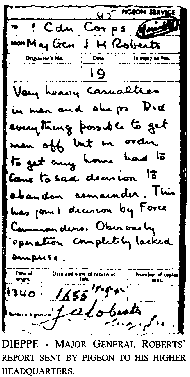 PIGEON SERVICE
TO 1 Cdn Corps
FROM Maj Gen J H Roberts
Originator's No. Date In reply to No.
19
Very heavy casualties
in men and ships. Did
everything possible to get
men off but in order
to get any home had to
come to sad decision to
abandon remainder. This
was joint decision by Force
Commanders. Obviously
operation completely lacked
surprise.
DIEPPE - MAJOR GENERAL ROBERTS'
REPORT SENT BY PIGEON TO HIS HIGHER
HEADQUARTERS.